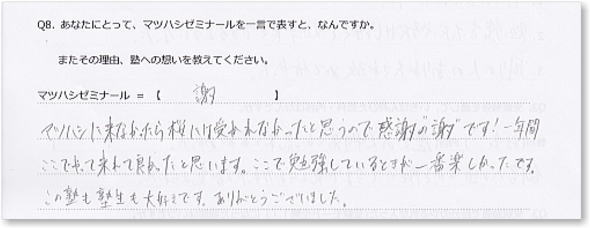 Q8. あなたにとって、マツハシゼミナールを一言で表すと、なんですか。
またその理由、塾への想いを教えてください。
マツハシゼミナール ＝ 【 謝 】
マツハシに来なかったら桜には受かれなかったと思うので感謝の"謝"です！一年間
ここでやって来れて良かったと思います。ここで勉強しているときが一番楽しかったです。
この塾も塾生も大好きです。ありがとうございました。